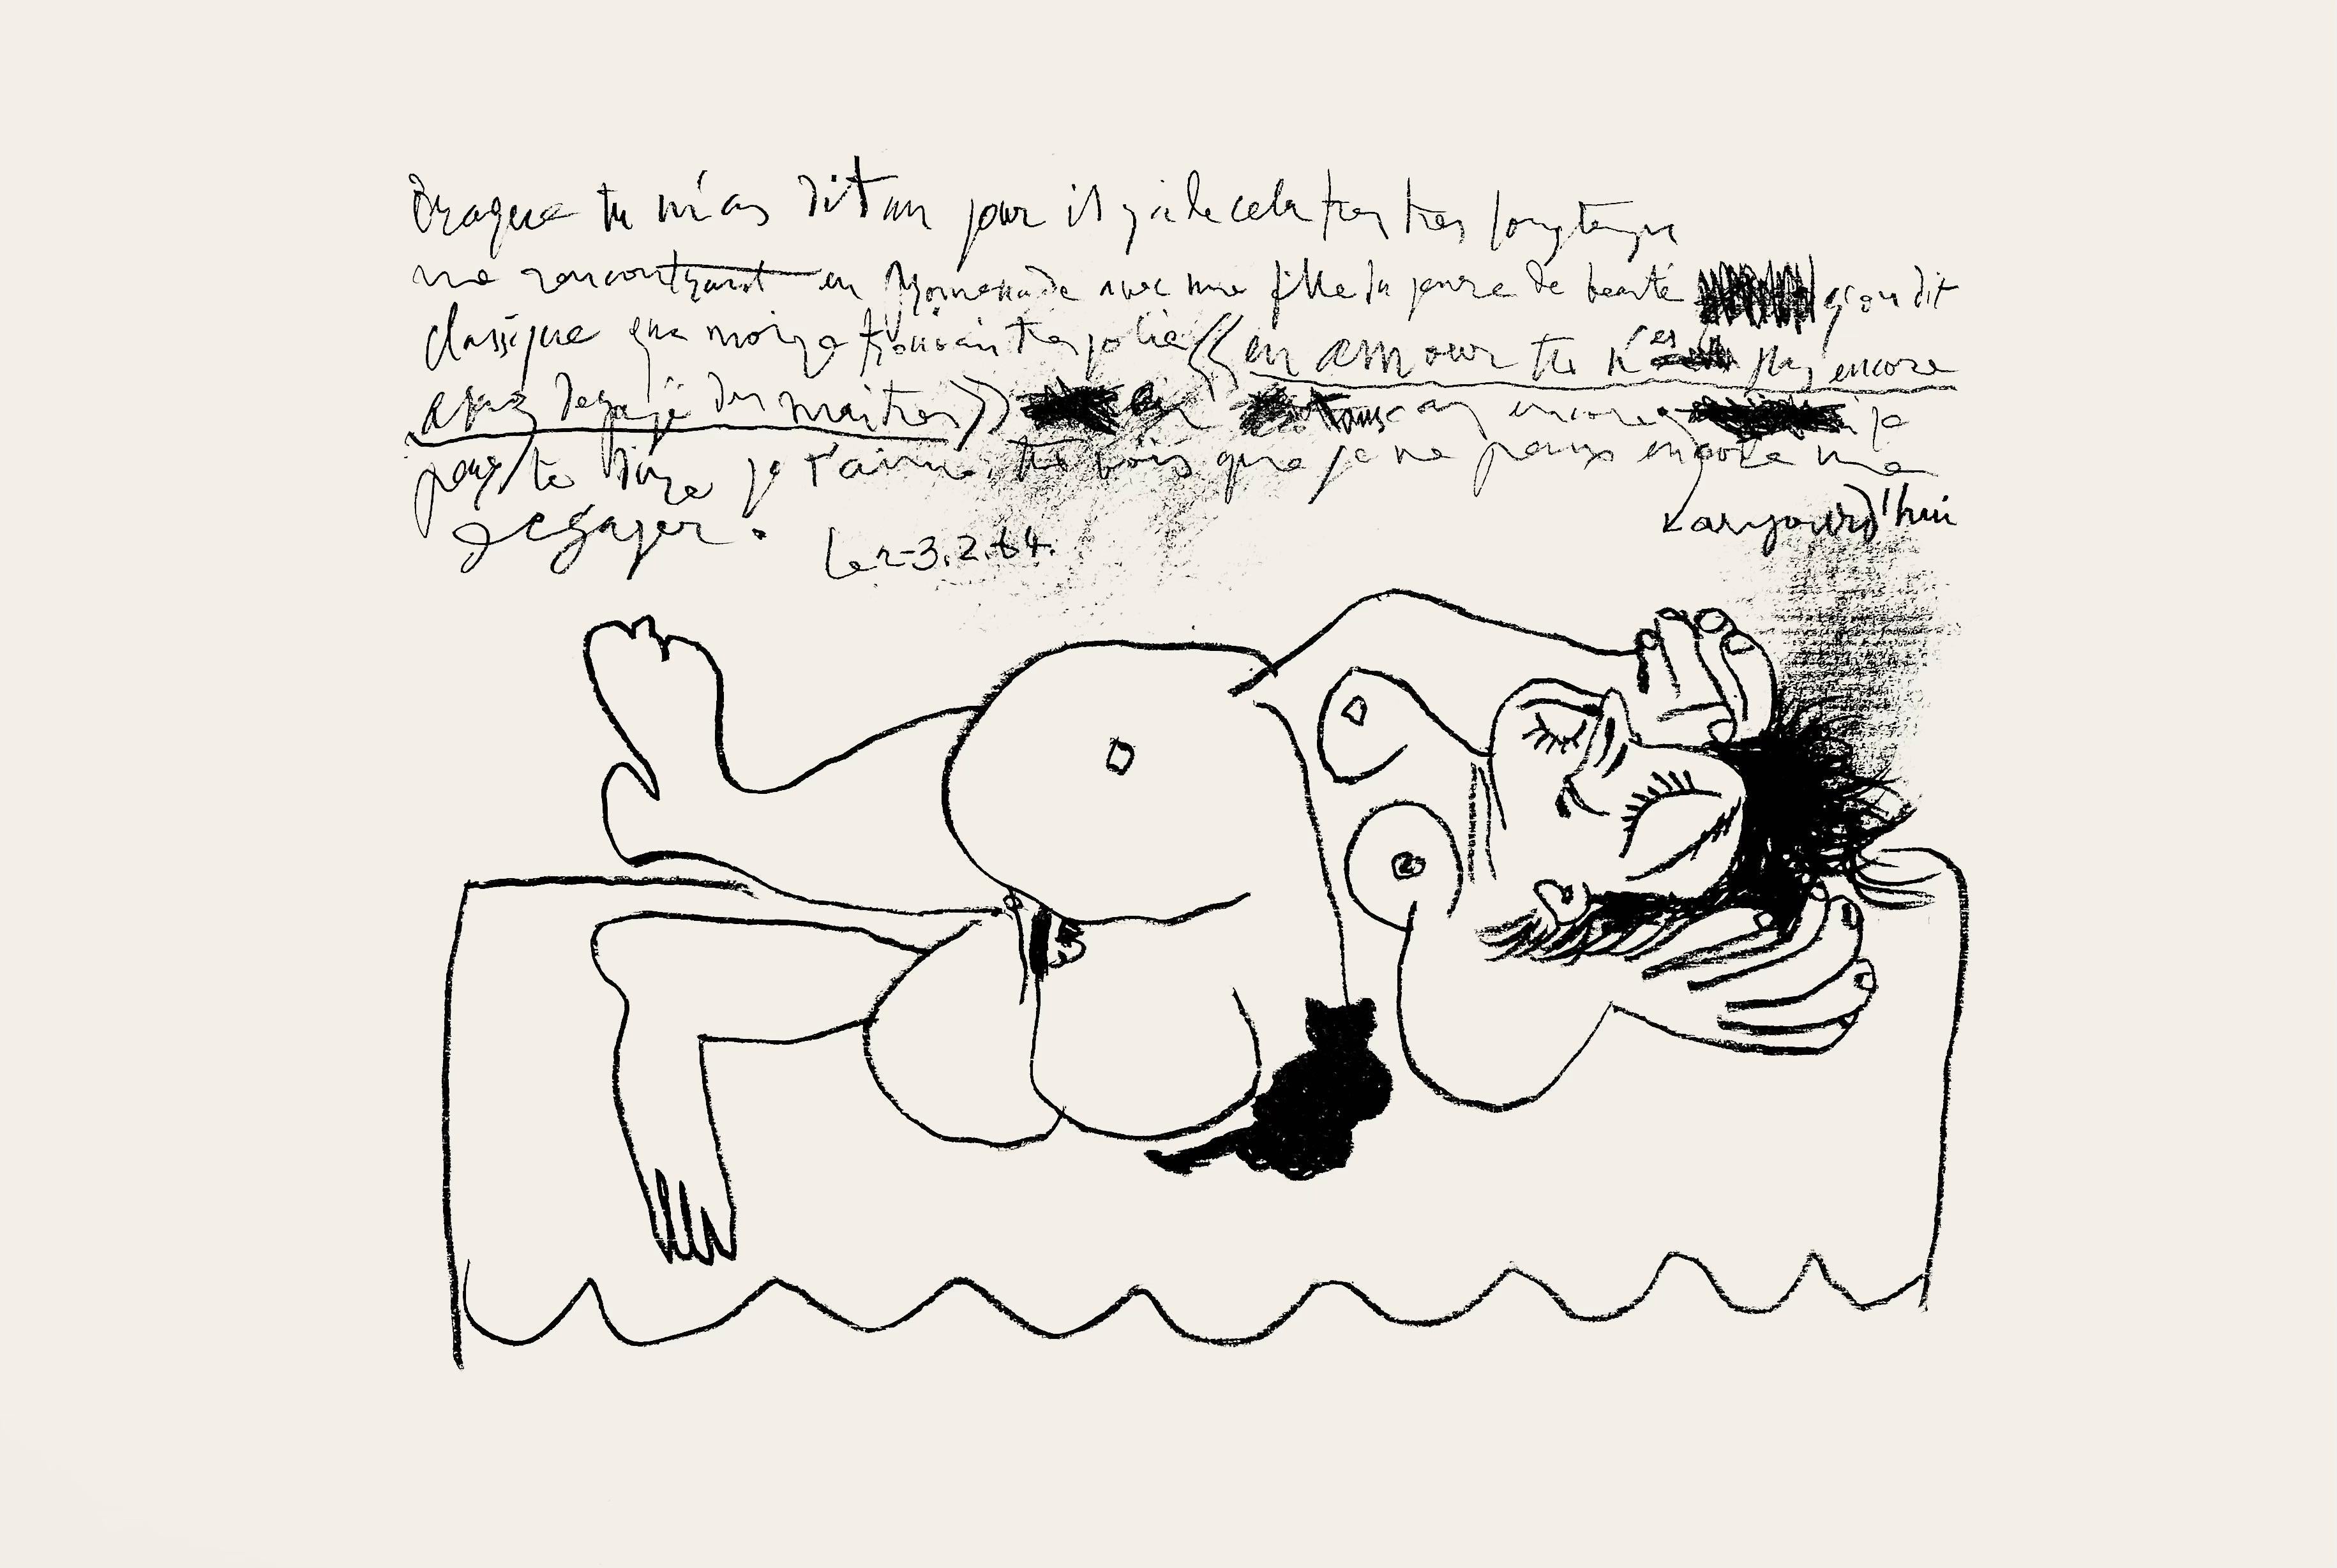 Braque tu m'as dit un jour il y a de cela tres tres longtemps
me rencontrant en promenade avec une fille du genre de beauté qu'on dit
classique que moi je trouvais tres jolie « en amour tu n'es pas encore
assez degagé des maitres » encore je
peux te dire je t'aime, tu vois que je ne peux encore me
aujourd'hui
degager.
Le 2-3.2.64.